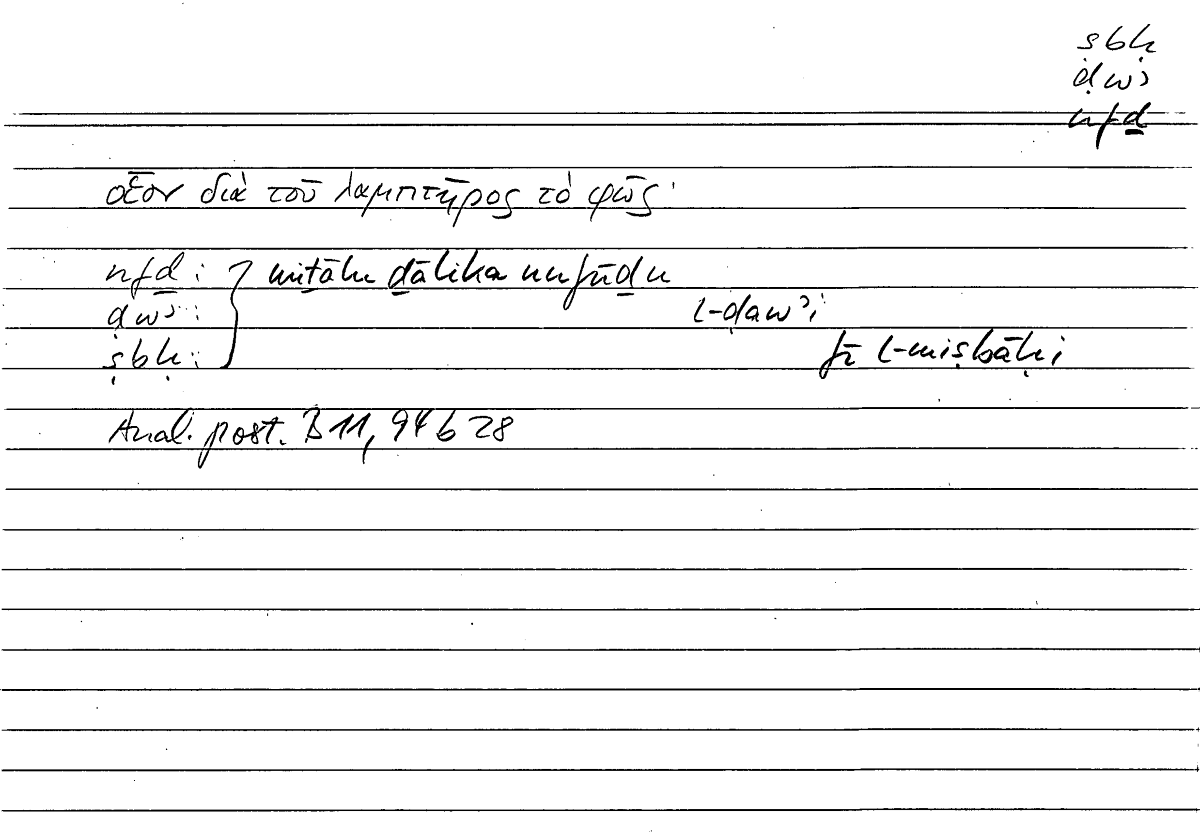 ṣbḥ
ḍwʾ
nfḏ
οἷον διὰ τοῦ λαμπτῆρος τὸ φῶς·
nfḏ: } miṯālu ḏālika nufūḏu
ḍwʾ: l-ḍawʾi
ṣbḥ: fī l-miṣbāḥi
Anal. post. B 11, 94 b 28